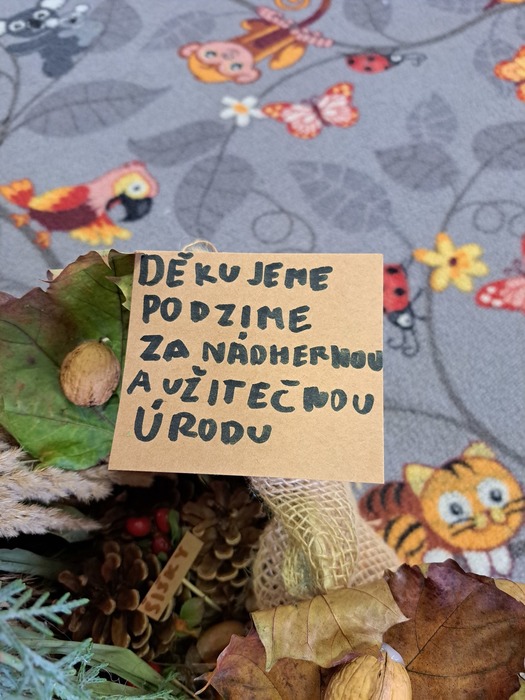 DĚKUJEME
PODZIME
ZA NÁDHERNOU
A UŽITEČNOU
ÚRODU